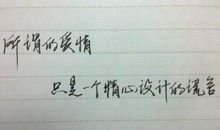 所谓的爱情
只是一个精心设计的谎言